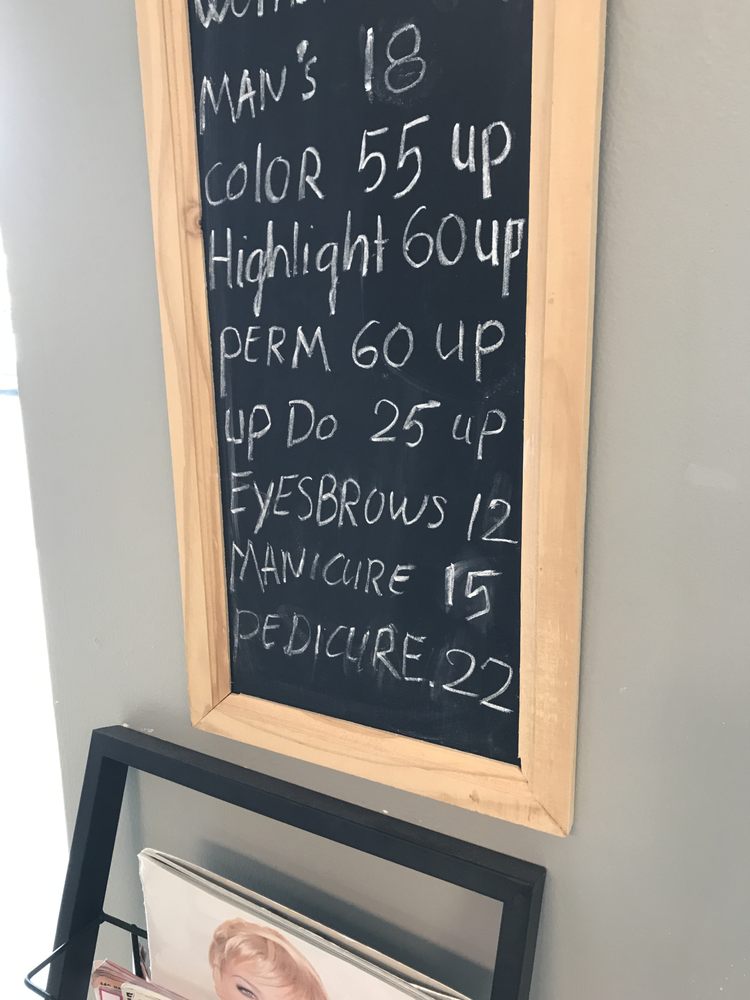 MAN'S 18
COLOR 55 up
Highlight 60 up
PERM 60 up
up Do 25 up
EYESBROWS 12
MANICURE 15
PEDICURE.22